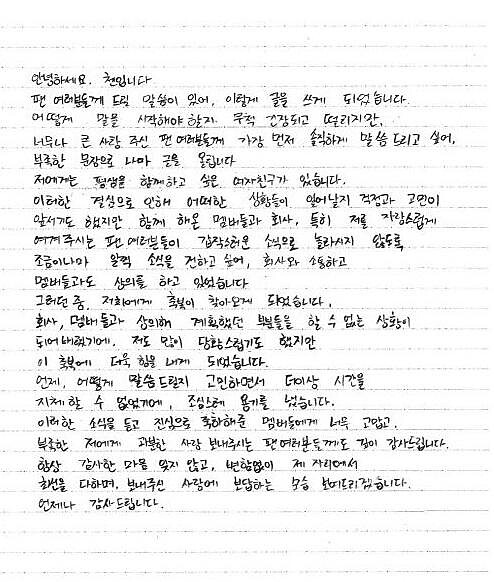 안녕하세요. 첸입니다
팬 여러분들께 드릴 말씀이 있어, 이렇게 글을 쓰게 되었습니다.
어떻게 말을 시작해야 할지 무척 긴장되고 떨리지만,
너무나 큰 사랑 주신 팬 여러분들께 가장 먼저 솔직하게 말씀드리고 싶어,
부족한 문장으로 나마 글을 올립니다
저에게는 평생을 함께하고 싶은 여자친구가 있습니다.
이러한 결심으로 인해 어떠한 상황들이 일어날지 걱정과 고민이
앞서기도 했지만 함께 해온 멤버들과 회사, 특히 저를 자랑스럽게
여겨주시는 팬 여러분들이 갑작스러운 소식으로 놀라시지 않도록
조금이나마 일찍 소식을 전하고 싶어, 회사와 소통하고
멤버들과도 상의를 하고 있었습니다
그러던 중, 저희에게 축복이 찾아오게 되었습니다.
회사, 멤버들과 상의해 계획했던 부분들을 할 수 없는 상황이
되어버렸기에, 저도 많이 당황스럽기도 했지만
이 축복에 더욱 힘을 내게 되었습니다.
언제, 어떻게 말씀드릴지 고민하면서 더이상 시간을
지체할 수 없었기에, 조심스레 용기를 냈습니다.
이러한 소식을 듣고 진심으로 축하해준 멤버들에게 너무 고맙고,
부족한 저에게 과분한 사랑 보내주시는 팬여러분들께도 깊이 감사드립니다.
항상 감사한 마음 잊지 않고, 변함없이 제 자리에서
최선을 다하며, 보내주신 사랑에 보답하는 모습 보여드리겠습니다.
언제나 감사드립니다.